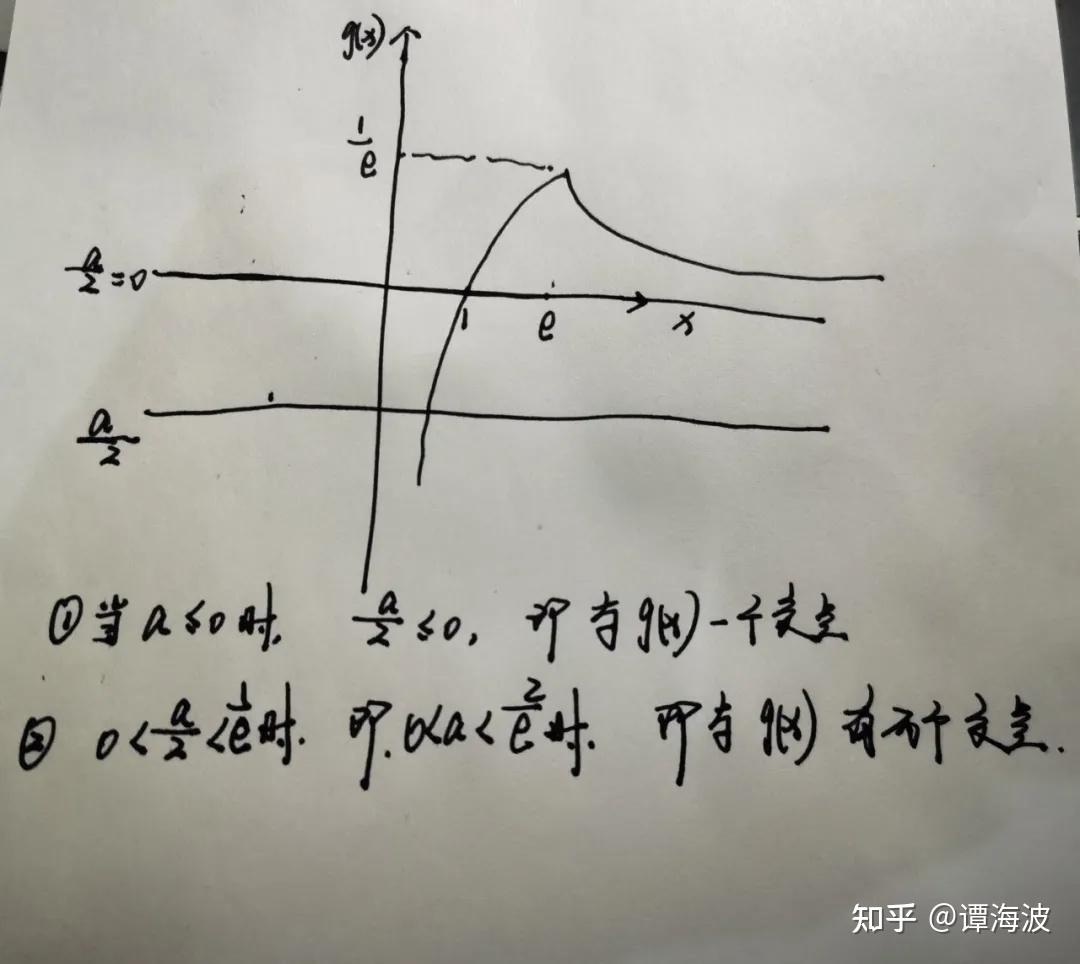 g(x)
1/e
a/2=0
1
e
x
a/2
①当a≤0时, a/2≤0, 即与g(x)一个交点
② 0<a/2<1/e时. 即.0<a<2/e时. 即与g(x)有两个交点.
知乎 @谭海波